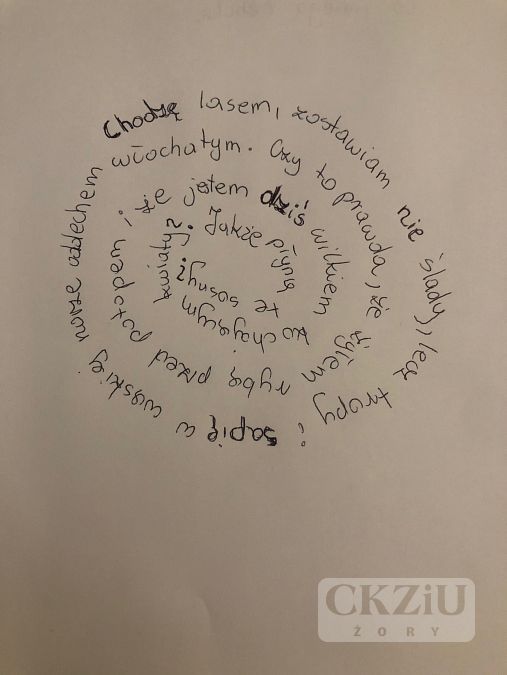 Chodzę lasem, zostawiam nie ślady, lecz tropy i sapię w wąskiej norze oddechem włochatym. Czy to prawda, że żyłem rybą przed potopem i że jestem dziś wilkiem kochającym kwiaty? Jakże płyną te sosny!
CKZiU
ŻORY